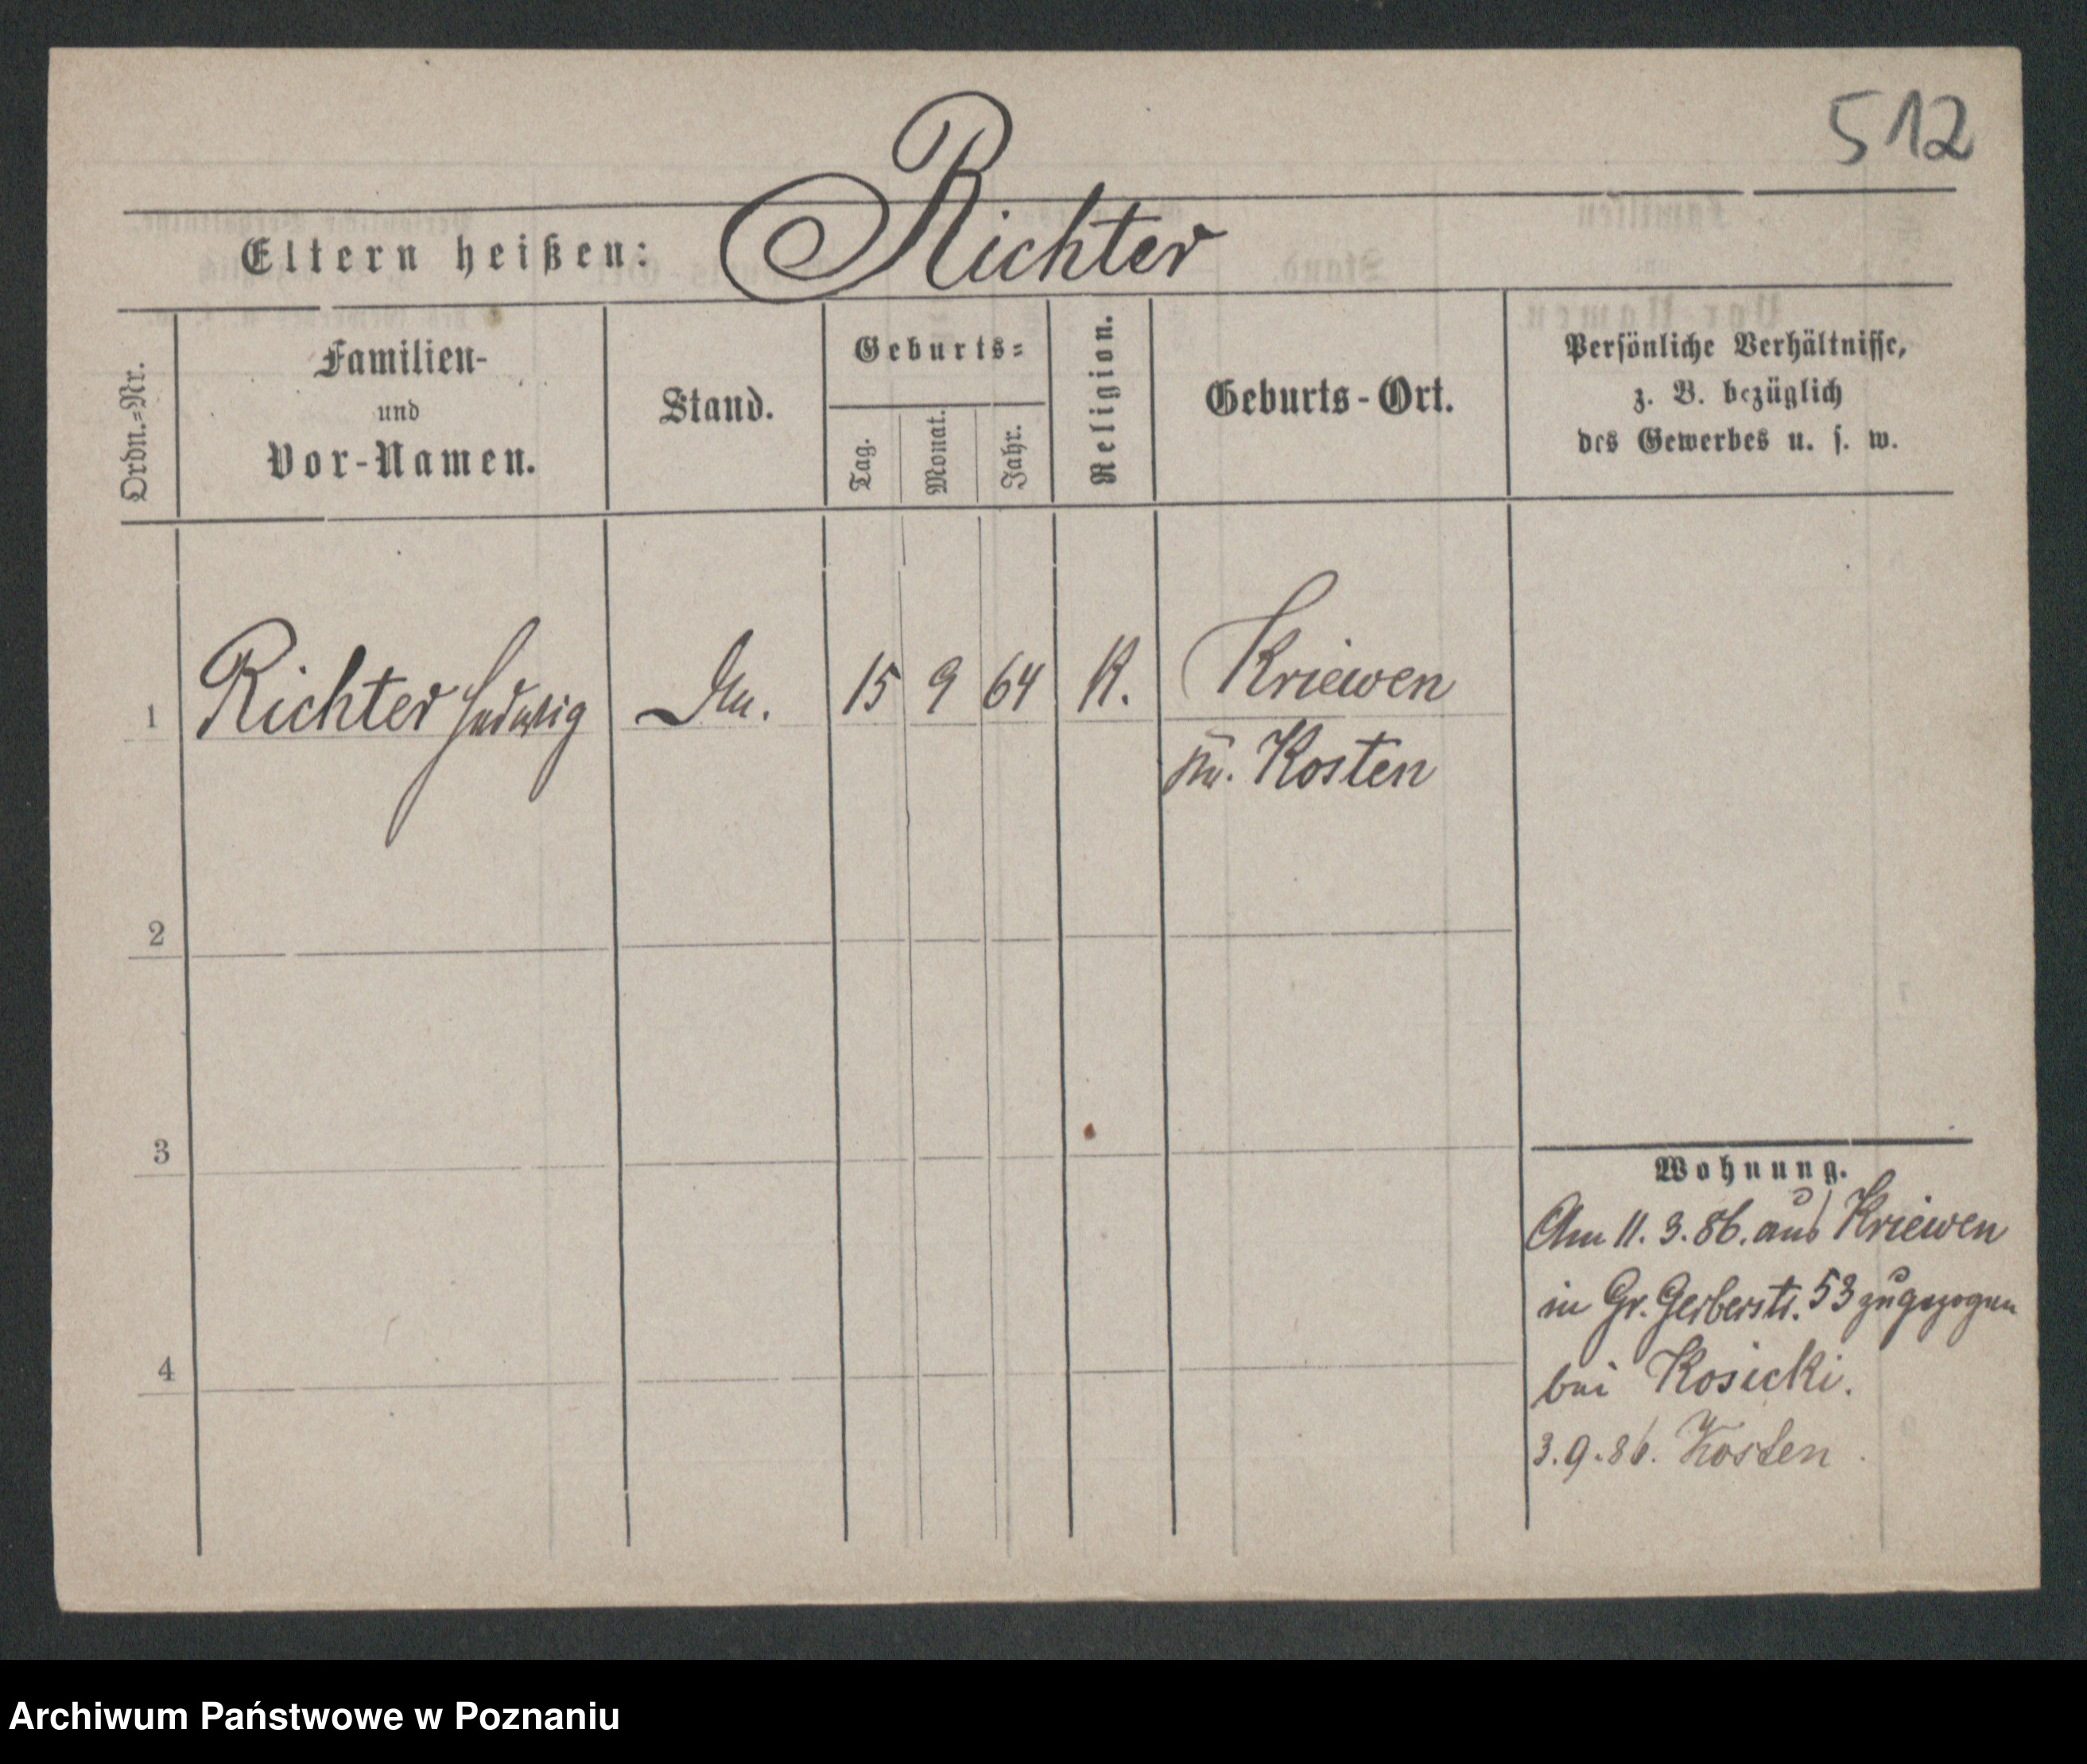 512
Eltern heißen: Richter
Ordn.=Nr.
Familien-
und
Vor-Namen.
Stand.
Geburts=
Tag.
Monat.
Jahr.
Religion.
Geburts-Ort.
Persönliche Verhältnisse,
z. B. bezüglich
des Gewerbes u. s. w.
1 Richter Hedwig 15 9 64 K. Kriewen
Kosten
2
3
4
Wohnung.
Am 11. 3. 86. aus Kriewen
in Gr. Gerberstr. 53 zugezogen
bei Kosicki.
3. 9. 86. Kosten
Archiwum Państwowe w Poznaniu